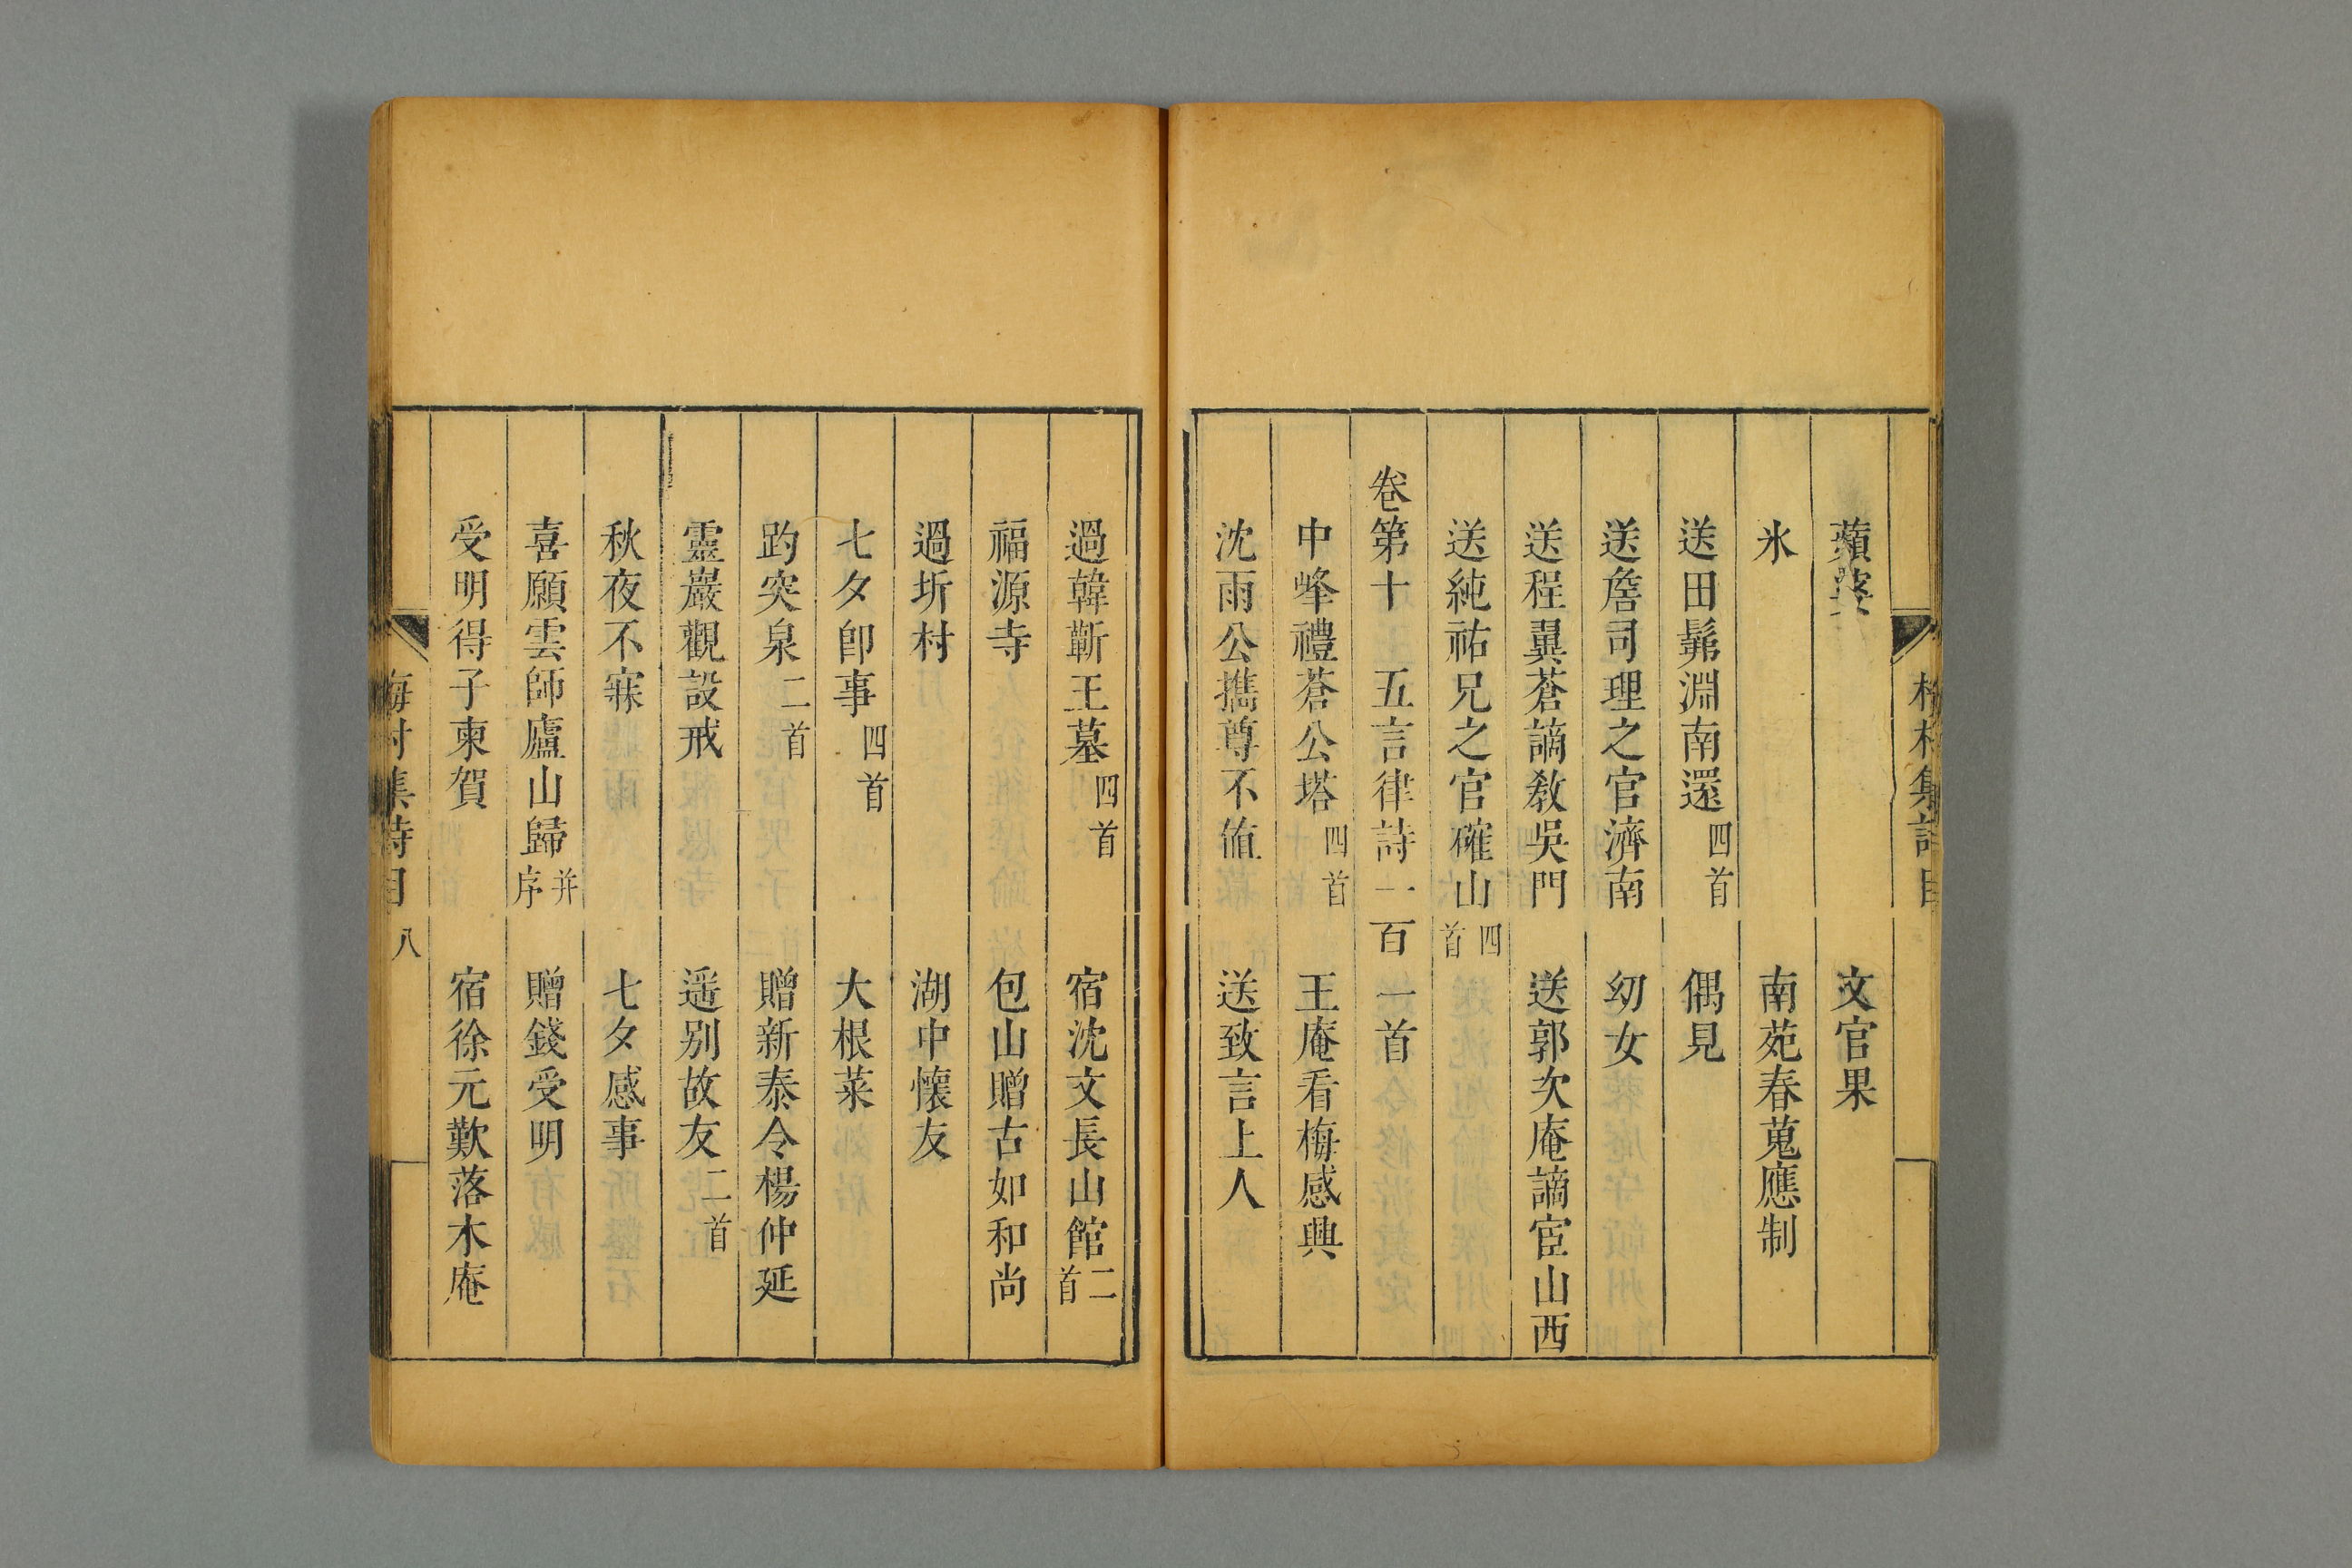 蘋婆 文官果
氷 南苑春蒐應制
送田髴淵南還四首 偶見
送詹司理之官濟南 幼女
送程翼蒼謫教吳門 送郭次庵謫宦山西
送純祜兄之官確山四首
卷第十 五言律詩一百一首
中峰禮蒼公塔四首 王庵看梅感興
沈雨公攜尊不値 送致言上人
過韓蘄王墓四首 宿沈文長山館二首
福源寺 包山贈古如和尚
過圻村 湖中懷友
七夕卽事四首 大根菜
趵突泉二首 贈新泰令楊仲延
靈巖觀設戒 遥别故友二首
秋夜不寐 七夕感事
喜願雲師廬山歸并序 贈錢受明
受明得子柬賀 宿徐元歎落木庵
梅村集詩目 八